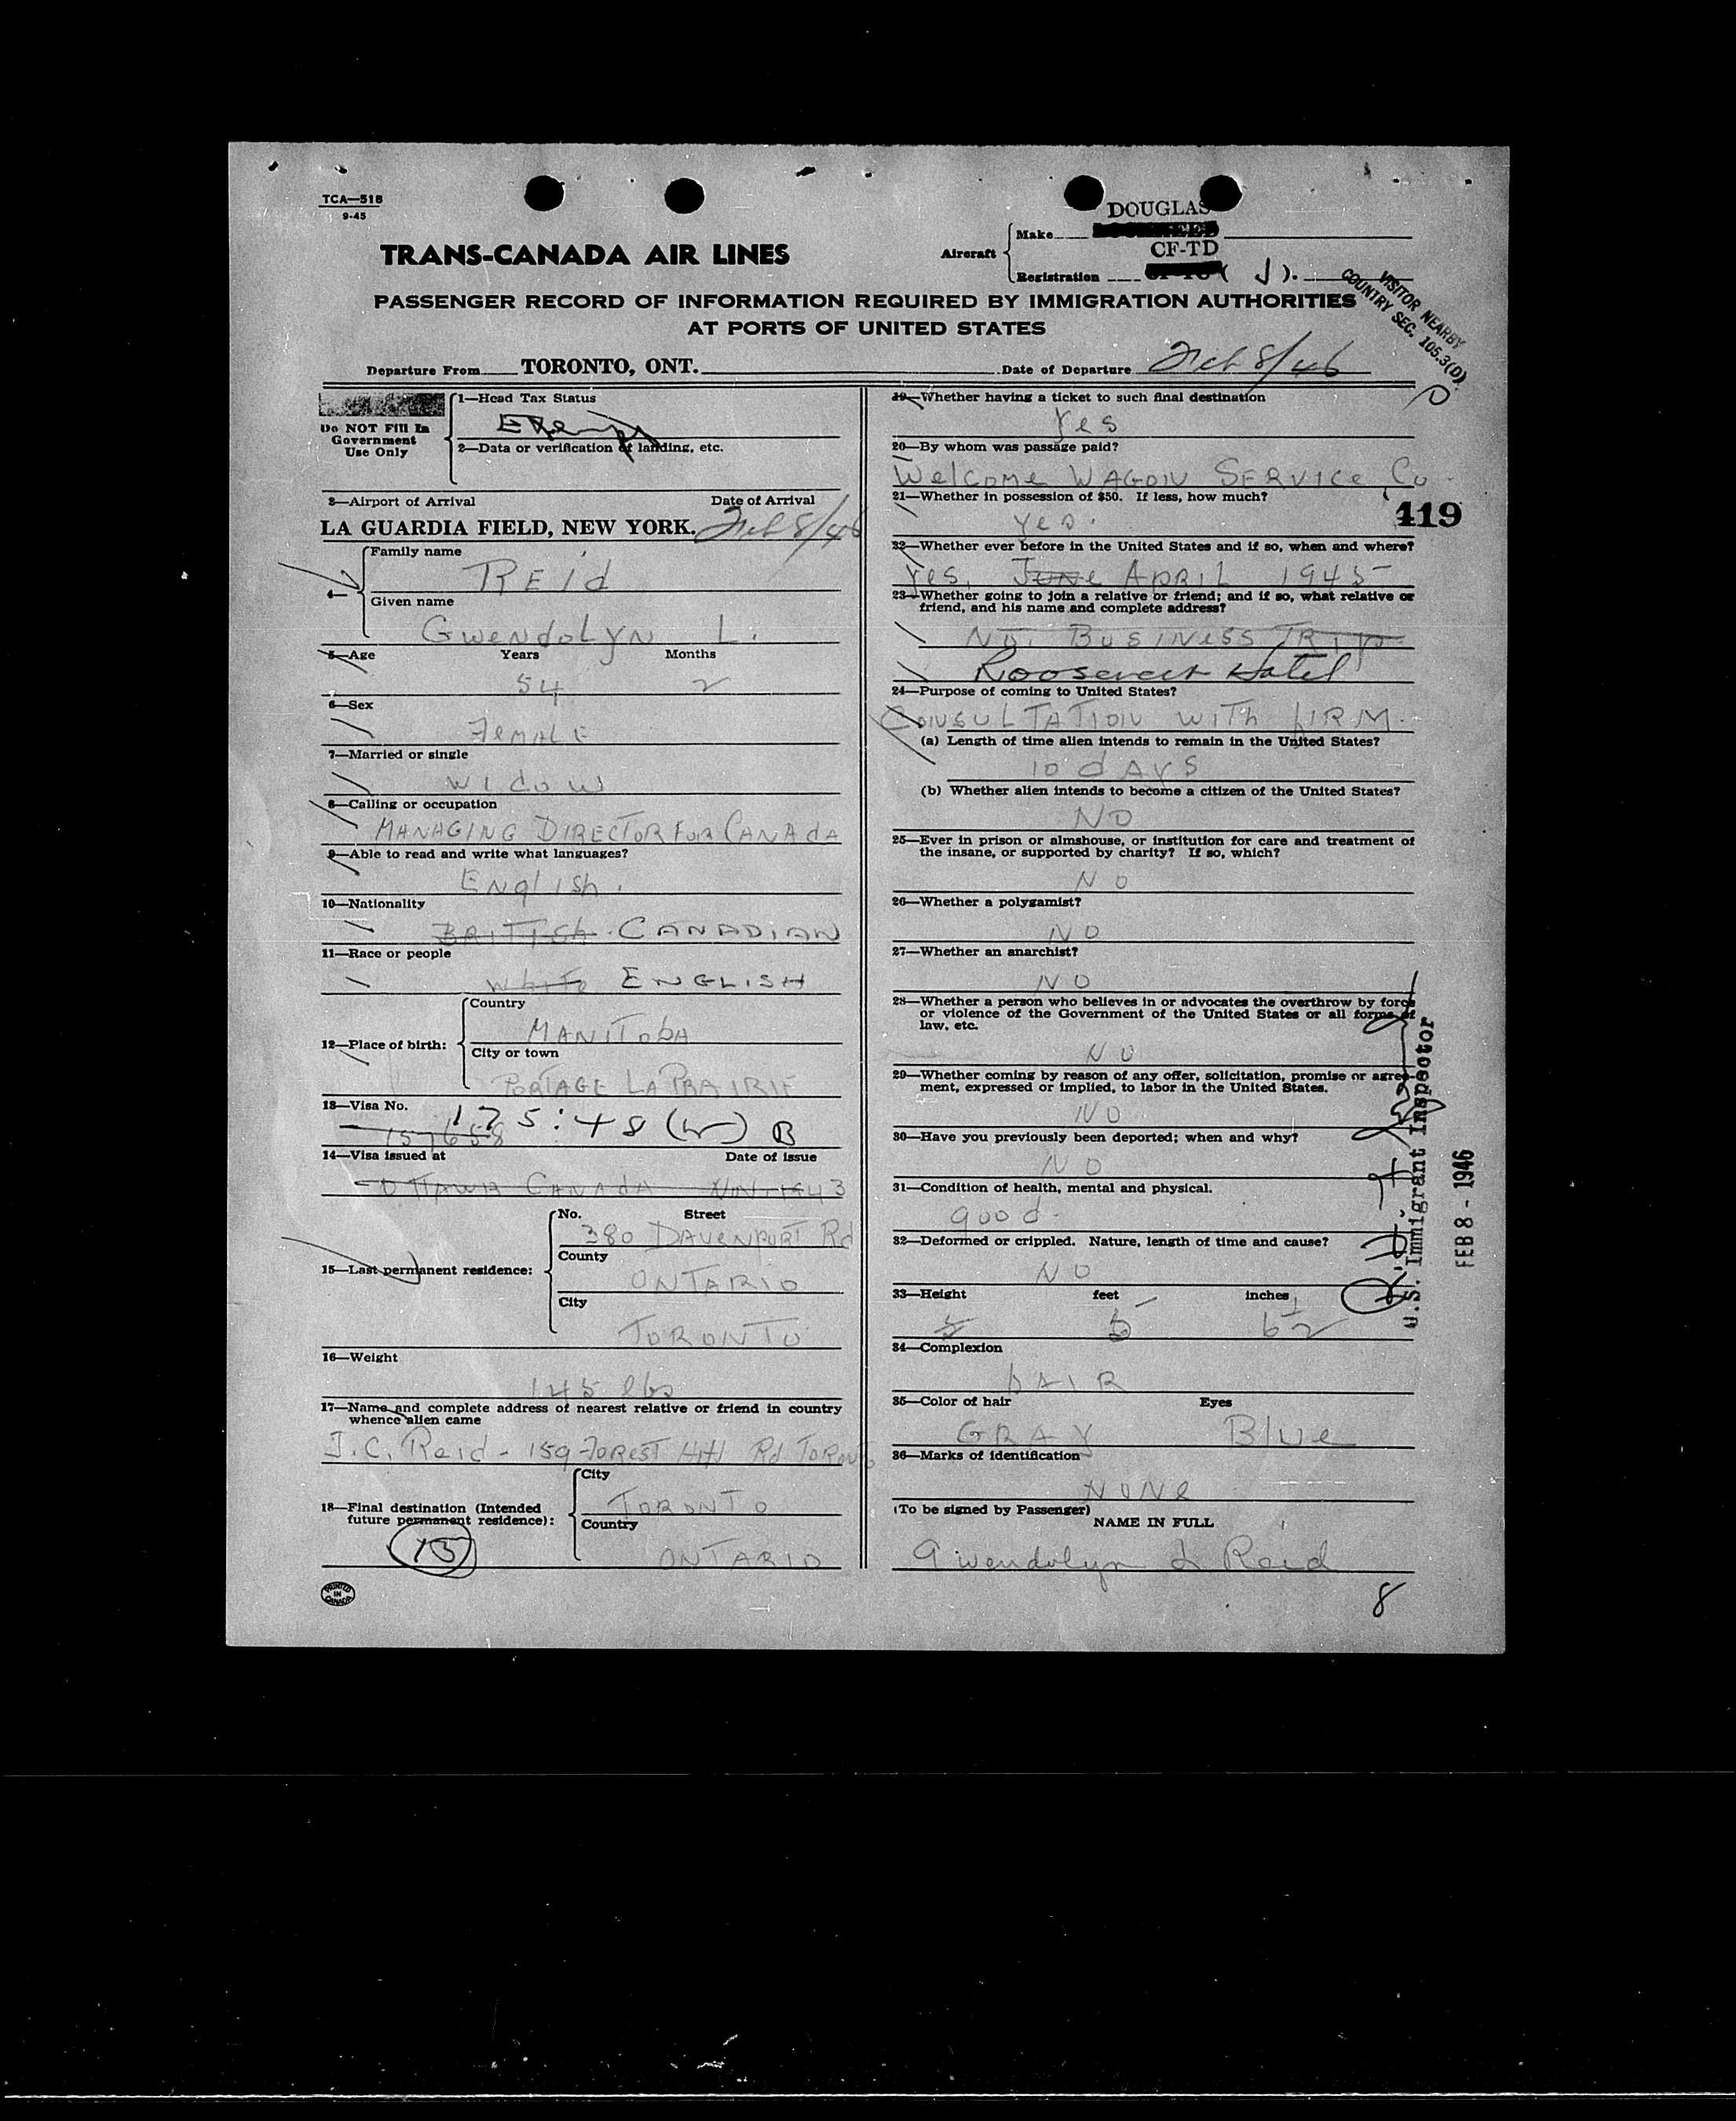 TCA—518
9-45
TRANS-CANADA AIR LINES
Aircraft
Make
DOUGLAS
Registration
CF-TD
( J ).
VISITOR NEARBY
COUNTRY SEC. 105.3(D)
PASSENGER RECORD OF INFORMATION REQUIRED BY IMMIGRATION AUTHORITIES
AT PORTS OF UNITED STATES
Departure From TORONTO, ONT. Date of Departure Feb 8/46
Do NOT Fill In
Government
Use Only
1—Head Tax Status
Exempt
2—Data or verification of landing, etc.
3—Airport of Arrival Date of Arrival
LA GUARDIA FIELD, NEW YORK. Feb 8/46
4—
Family name
REId
Given name
GWENdOLYN L.
5—Age Years Months
54 2
6—Sex
FEMALE
7—Married or single
WIdOW
8—Calling or occupation
MANAGING DIRECTOR FOR CANADA
9—Able to read and write what languages?
ENglish.
10—Nationality
BRITISh. CANADIAN
11—Race or people
White ENGLISH
12—Place of birth:
Country
MANITObA
City or town
PORTAGE LA PRAIRIE
13—Visa No.
157658 175:48 (W) B
14—Visa issued at Date of issue
OTTAWA CANAdA 1943
15—Last permanent residence:
No. Street
380 DAVENPORT Rd
County
ONTARIO
City
TORONTO
16—Weight
145 lbs
17—Name and complete address of nearest relative or friend in country
whence alien came
J.C. Reid - 159 FOREST Hill Rd TORONTO
18—Final destination (Intended
future permanent residence):
City
TORONTO
Country
ONTARIO
15
PRINTED
IN
CANADA
19—Whether having a ticket to such final destination
Yes
20—By whom was passage paid?
Welcome WAGON SERVICE Co.
21—Whether in possession of $50. If less, how much?
Yes.
419
22—Whether ever before in the United States and if so, when and where?
Yes, JUNE APRIL 1945
23—Whether going to join a relative or friend; and if so, what relative or
friend, and his name and complete address?
NO. BUSINESS TRIP.
Roosevelt Hotel
24—Purpose of coming to United States?
CONSULTATION WITH FIRM.
(a) Length of time alien intends to remain in the United States?
10 dAYS
(b) Whether alien intends to become a citizen of the United States?
NO
25—Ever in prison or almshouse, or institution for care and treatment of
the insane, or supported by charity? If so, which?
NO
26—Whether a polygamist?
NO
27—Whether an anarchist?
NO
28—Whether a person who believes in or advocates the overthrow by force
or violence of the Government of the United States or all forms of
law, etc.
NO
29—Whether coming by reason of any offer, solicitation, promise or agree-
ment, expressed or implied, to labor in the United States.
NO
30—Have you previously been deported; when and why?
NO
31—Condition of health, mental and physical.
good.
32—Deformed or crippled. Nature, length of time and cause?
NO
33—Height feet inches
5 5 6½
34—Complexion
FAIR
35—Color of hair Eyes
GRAY Blue
36—Marks of identification
NONE
(To be signed by Passenger)
NAME IN FULL
Gwendolyn L Reid
8
U.S. Immigrant Inspector
FEB 8 - 1946